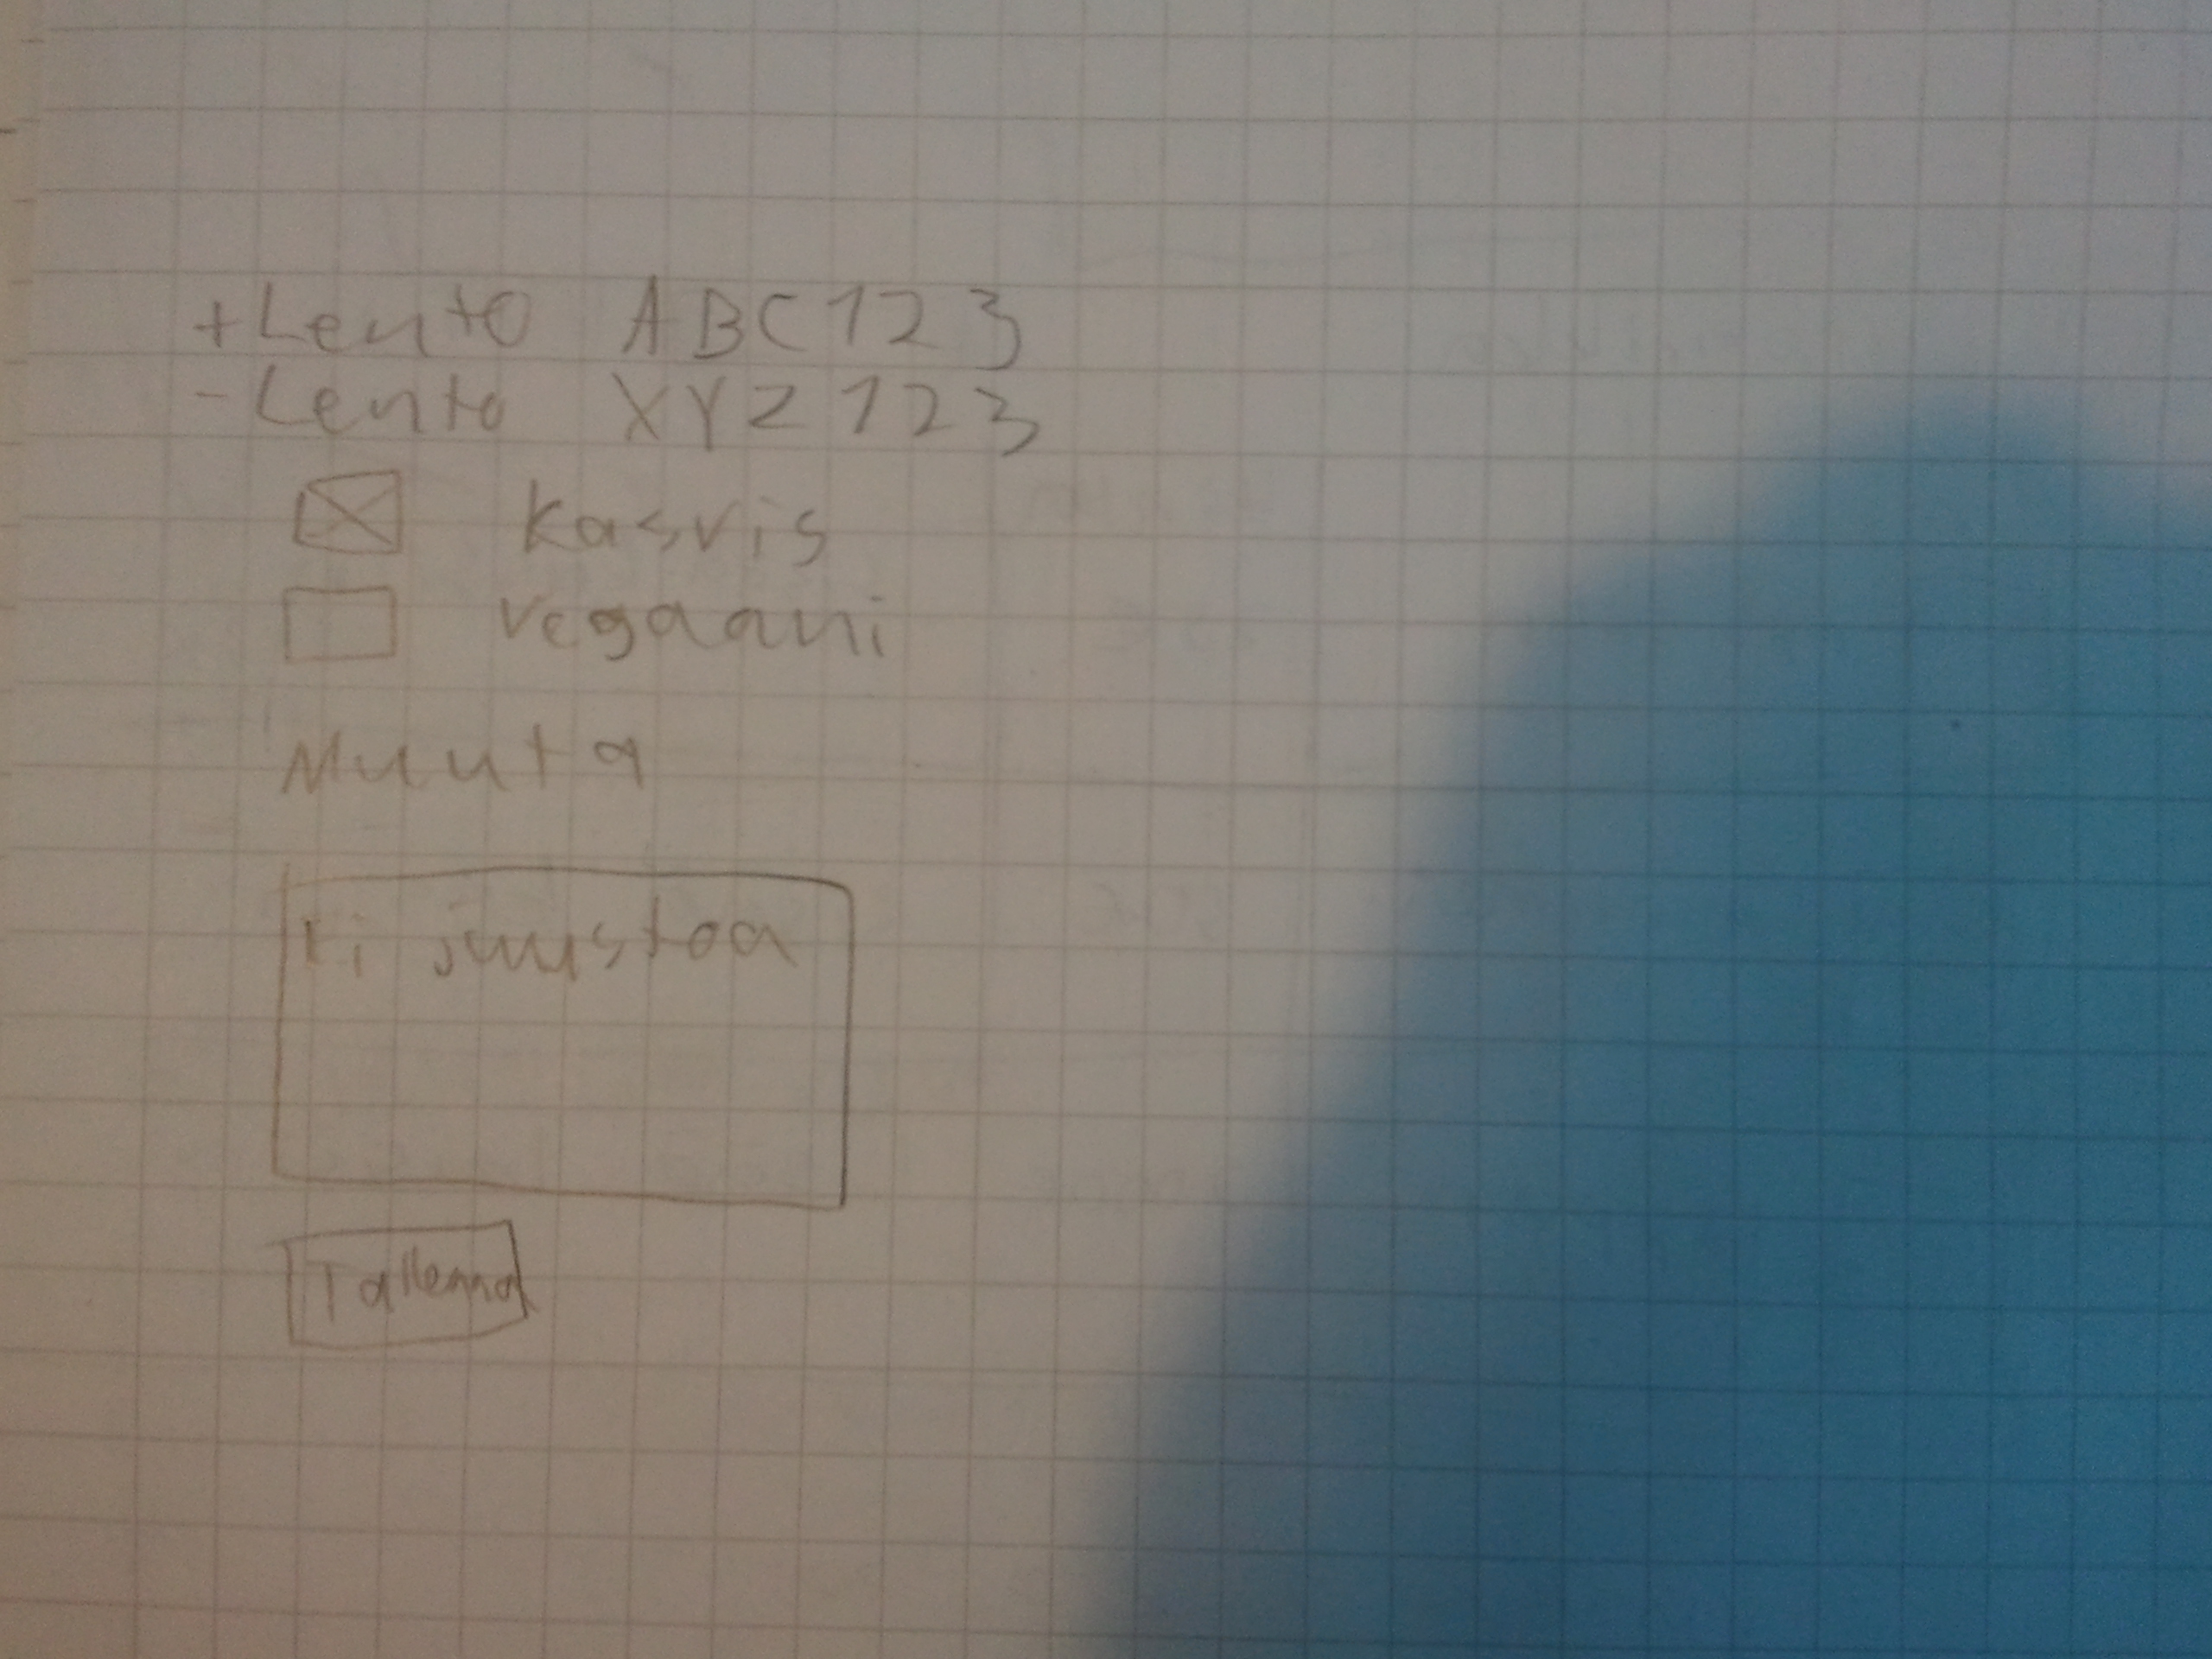 +Lento ABC123
-Lento XYZ123
Kasvis
Vegaani
Muuta
Ei juustoa
Tallenna